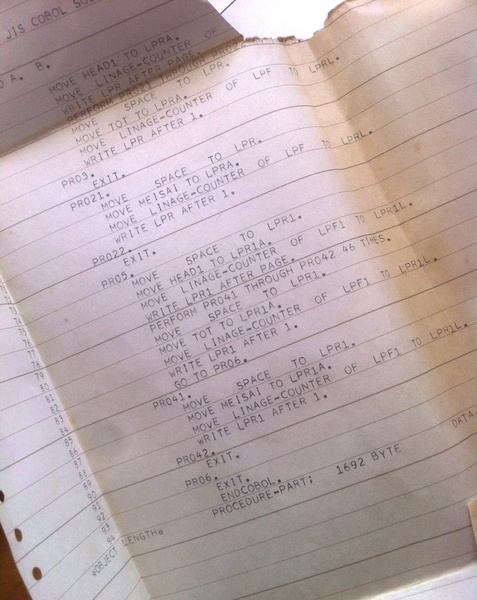 JIS COBOL SO
O A. B.
MOVE HEAD1 TO LPRA.
MOVE LINAGE-COUNTER OF
WRITE LPR AFTER PAGE.
PERFORM PRO21 THROUGH PRO22
MOVE SPACE TO LPR.
MOVE TOT TO LPRA.
MOVE LINAGE-COUNTER OF LPF TO LPRL.
WRITE LPR AFTER 1.
PRO3.
EXIT.
PRO21.
MOVE SPACE TO LPR.
MOVE MEISAI TO LPRA.
MOVE LINAGE-COUNTER OF LPF TO LPRL.
WRITE LPR AFTER 1.
PRO22.
EXIT.
PRO5.
MOVE SPACE TO LPR1.
MOVE HEAD1 TO LPR1A.
MOVE LINAGE-COUNTER OF LPF1 TO LPR1L.
WRITE LPR1 AFTER PAGE.
PERFORM PRO41 THROUGH PRO42 46 TIMES.
MOVE SPACE TO LPR1.
MOVE TOT TO LPR1A.
MOVE LINAGE-COUNTER OF LPF1 TO LPR1L.
WRITE LPR1 AFTER 1.
GO TO PRO6.
PRO41.
MOVE SPACE TO LPR1.
MOVE MEISAI TO LPR1A.
MOVE LINAGE-COUNTER OF LPF1 TO LPR1L.
WRITE LPR1 AFTER 1.
PRO42.
EXIT.
PRO6.
EXIT.
ENDCOBOL.
PROCEDURE-PART; 1692 BYTE
DATA-
*OBJECT LENGTH*
78
79
80
81
82
83
84
85
86
87
88
89
90
91
92
93
94